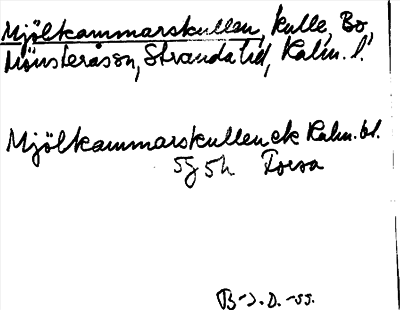 Mjölkammarskullen, kulle, Bo,
Mönsterås sn, Stranda hd, Kalm. l.
Mjölkammarskullen ek Kalm. bl.
5g 5h
B-J. D. -55.